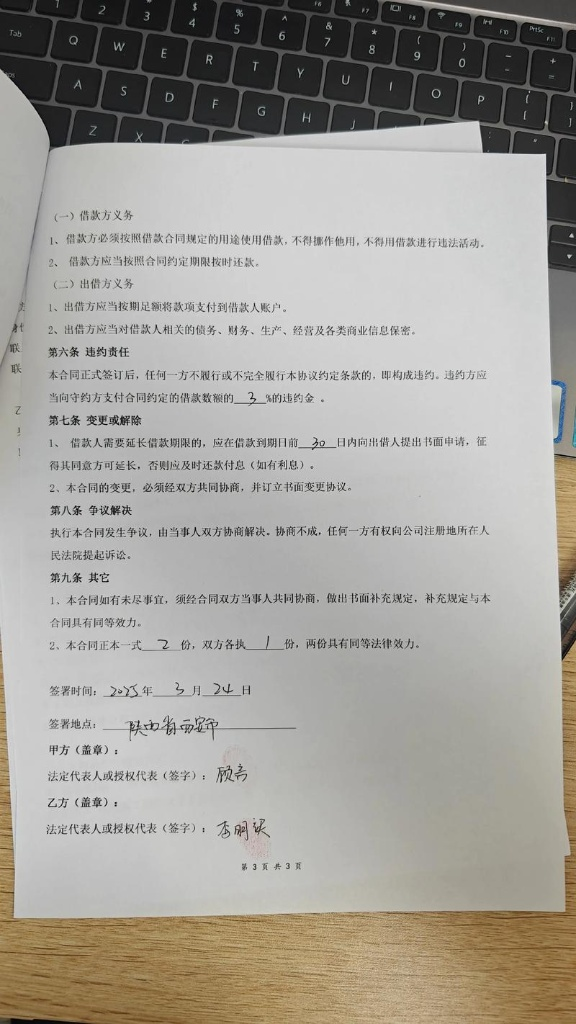 (一)借款方义务
1、借款方必须按照借款合同规定的用途使用借款,不得挪作他用,不得用借款进行违法活动。
2、 借款方应当按照合同约定期限按时还款。
(二)出借方义务
1、出借方应当按期足额将款项支付到借款人账户。
2、出借方应当对借款人相关的债务、财务、生产、经营及各类商业信息保密。
第六条 违约责任
本合同正式签订后,任何一方不履行或不完全履行本协议约定条款的,即构成违约。违约方应
当向守约方支付合同约定的借款数额的 3 %的违约金 。
第七条 变更或解除
1、 借款人需要延长借款期限的,应在借款到期日前 30 日内向出借人提出书面申请,征
得其同意方可延长,否则应及时还款付息(如有利息)。
2、本合同的变更,必须经双方共同协商,并订立书面变更协议。
第八条 争议解决
执行本合同发生争议,由当事人双方协商解决。协商不成,任何一方有权向公司注册地所在人
民法院提起诉讼。
第九条 其它
1、本合同如有未尽事宜,须经合同双方当事人共同协商,做出书面补充规定,补充规定与本
合同具有同等效力。
2、本合同正本一式 2 份,双方各执 1 份,两份具有同等法律效力。
签署时间: 2025 年 3 月 24 日
签署地点: 陕西省西安市
甲方(盖章):
法定代表人或授权代表(签字): 顾
乙方(盖章):
法定代表人或授权代表(签字): 李明
第 3 页 共 3 页